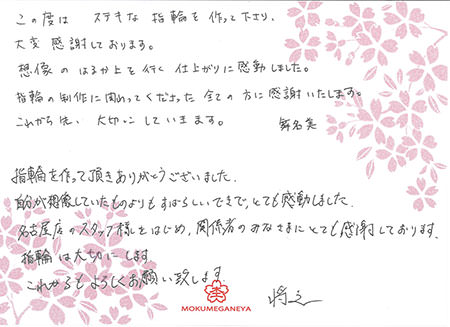 この度は ステキな 指輪を作って下さり、
大変感謝しております。
想像のはるか上を行く仕上がりに感動しました。
指輪の制作に関わってくださった全ての方に感謝いたします。
これから先、大切にしていきます。
指輪を作って頂きありがとうございました。
自分が想像していたものよりもすばらしいできで、とても感動しました。
名古屋店のスタッフ様をはじめ、関係者のみなさまにとても感謝しております。
指輪は大切にします。
これからもよろしくお願い致します。
将之
MOKUMEGANEYA